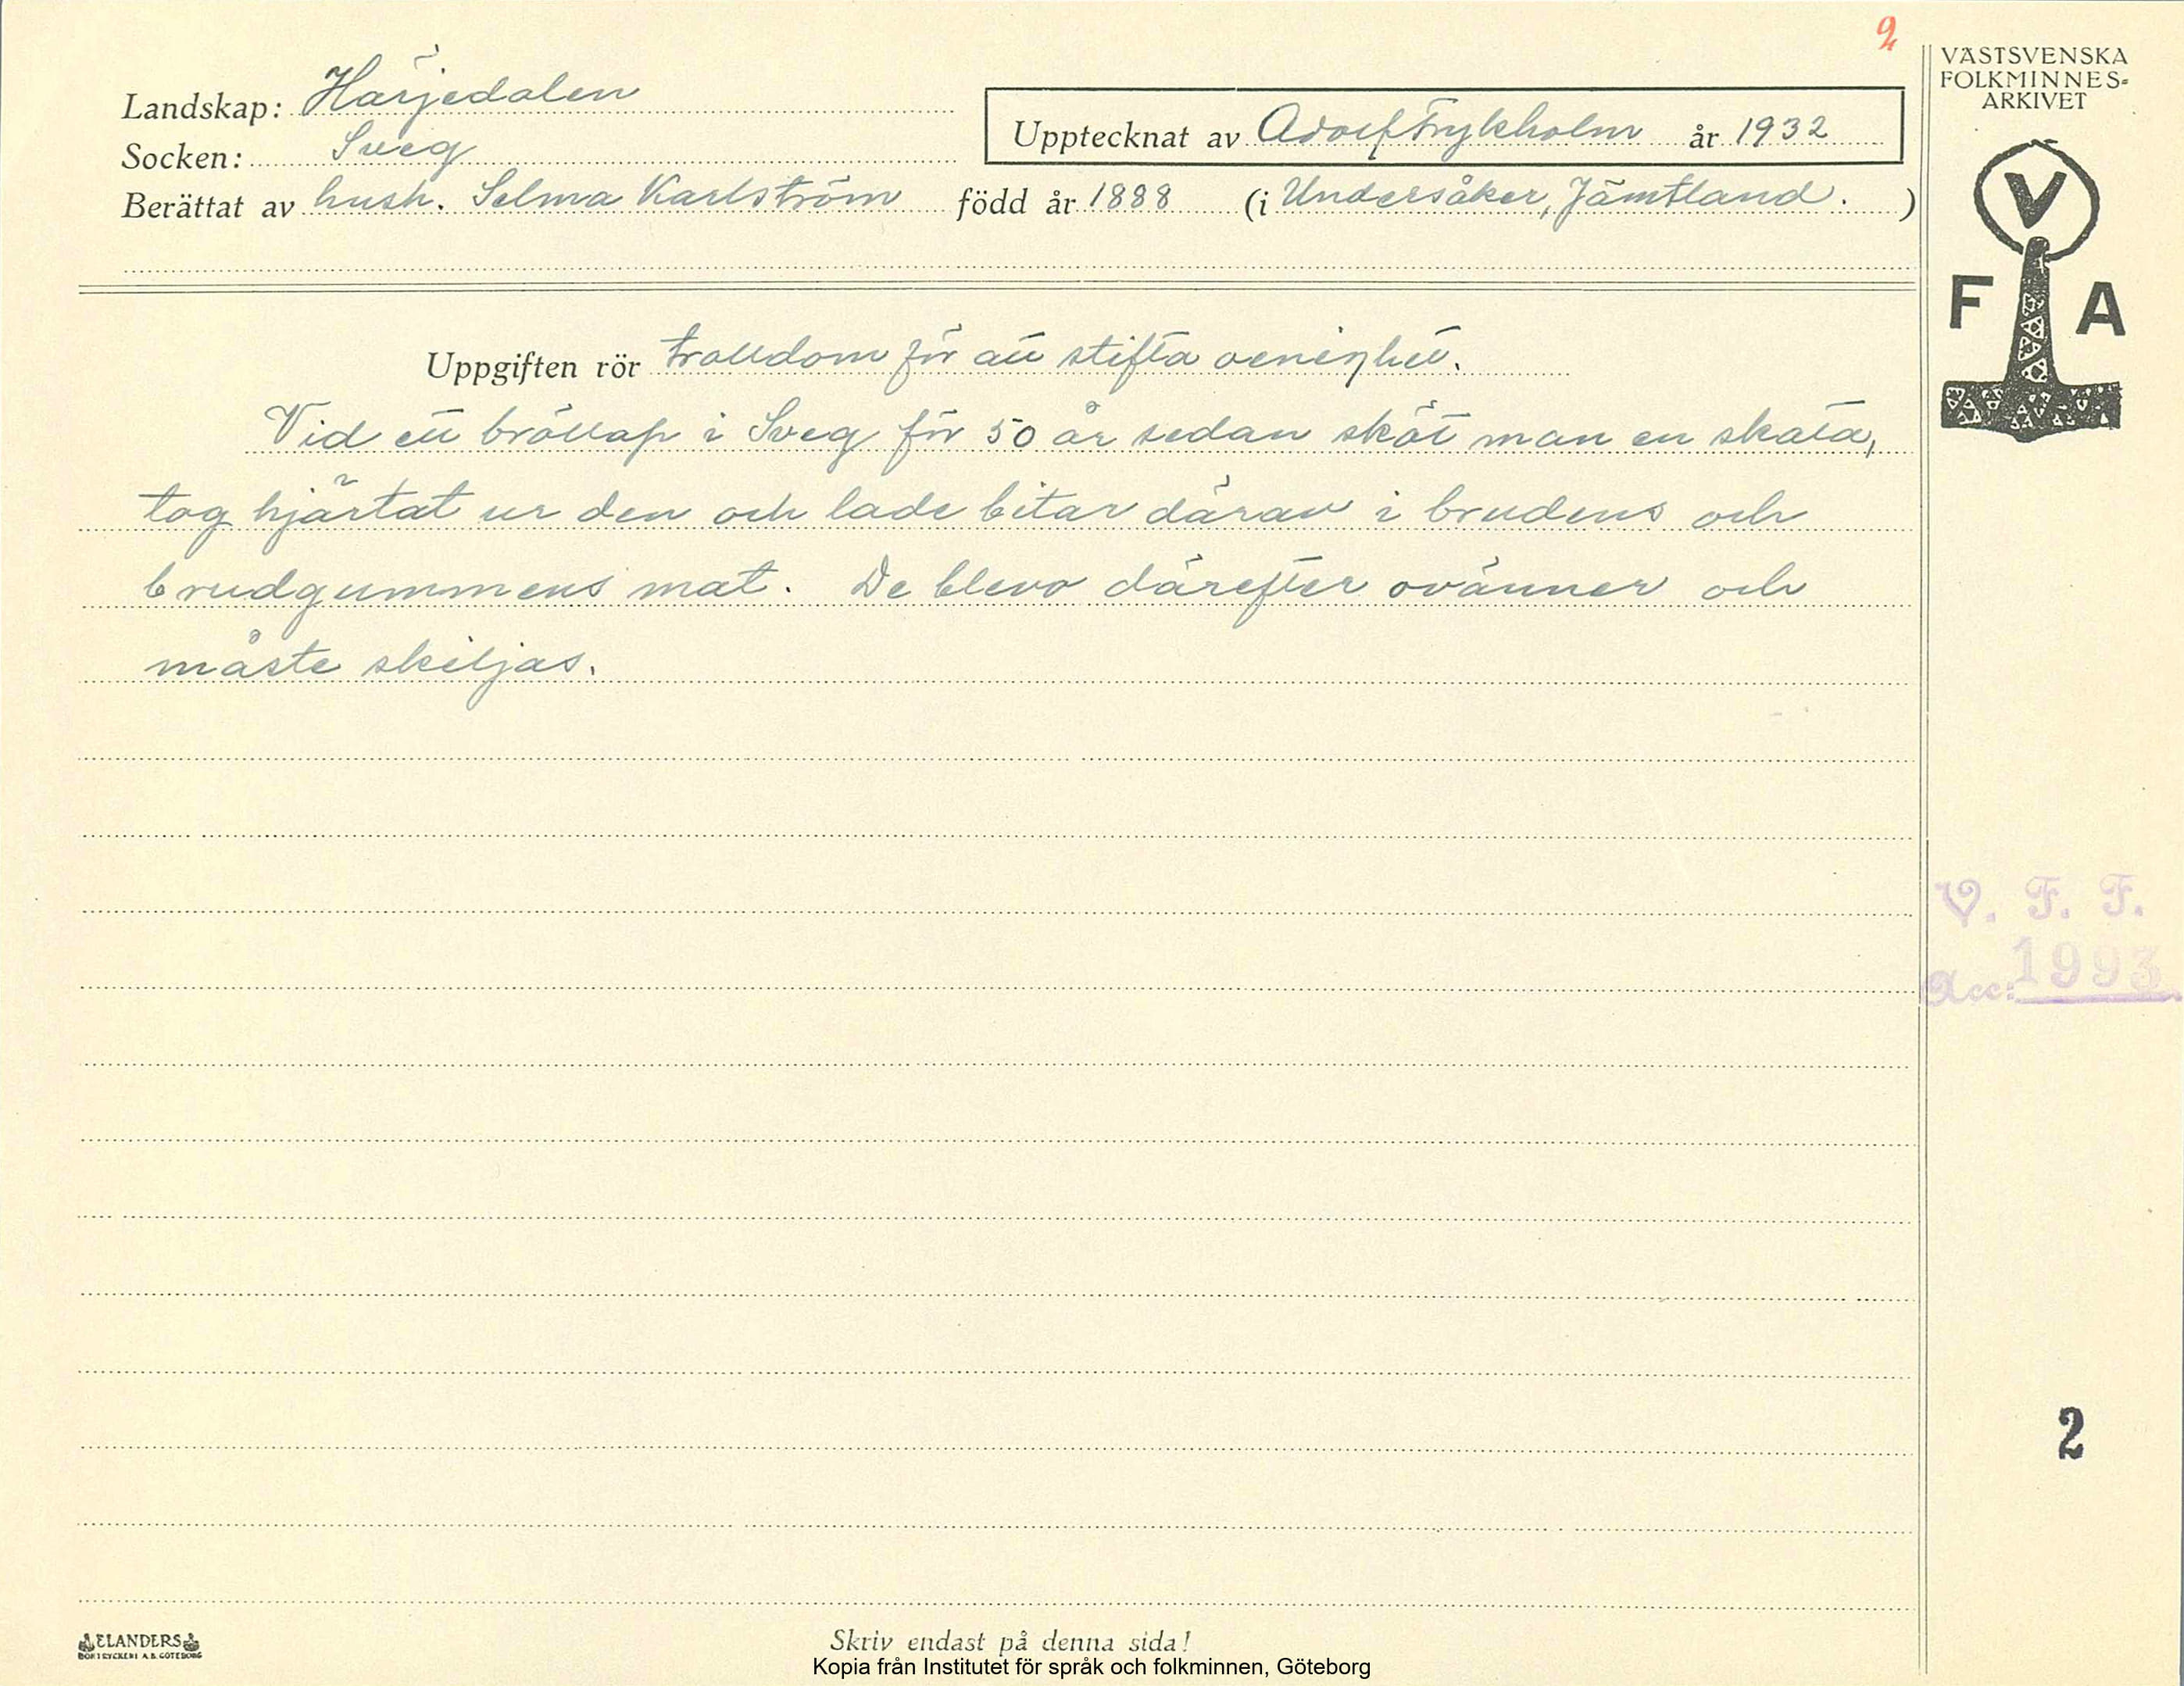 2
VÄSTSVENSKA
FOLKMINNES-
ARKIVET
Landskap: Härjedalen
Upptecknat av Adolf Frykholm år 1932
Socken: Sveg
Berättat av hush. Selma Karlström född år 1888 (i Undersåker, Jämtland. )
V
F A
Uppgiften rör trolldom för att stifta oenighet.
Vid ett bröllop i Sveg för 50 år sedan sköt man en skata,
tog hjärtat ur den och lade bitar därav i brudens och
brudgummens mat. De blevo därefter ovänner och
måste skiljas.
V. F. F.
Acc: 1993
2
ELANDERS
BOKTRYCKERI A.B. GÖTEBORG
Skriv endast på denna sida!
Kopia från Institutet för språk och folkminnen, Göteborg